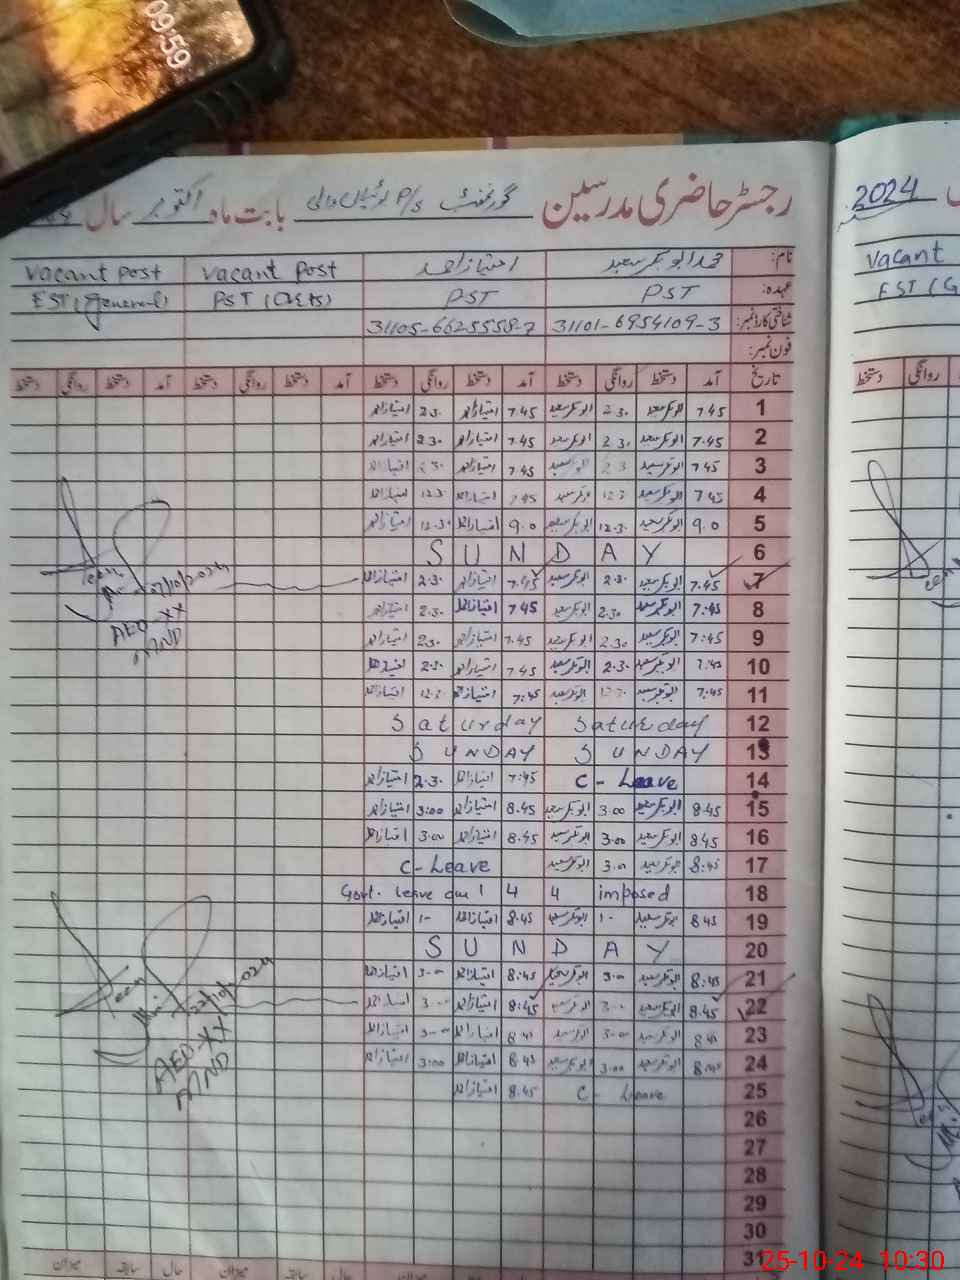 09:59
رجسٹر حاضری مدرسین گورنمنٹ P/S بابت ماہ اکتوبر سال
2024
نام: محمد ابوبکر سعید امتیاز احمد Vacant post Vacant post
Vacant
عہدہ: PST PST PST EST (General)
EST (G
شناختی کارڈ نمبر: 31101-6954109-3 31105-6625558-7
فون نمبر:
تاریخ آمد دستخط روانگی دستخط آمد دستخط روانگی دستخط آمد دستخط روانگی دستخط آمد دستخط روانگی دستخط
روانگی دستخط
1 7.45 ابوبکر سعید 2.30 ابوبکر سعید 7.45 امتیاز احمد 2.30 امتیاز احمد
2 7.45 ابوبکر سعید 2.30 ابوبکر سعید 7.45 امتیاز احمد 2.30 امتیاز احمد
3 7.45 ابوبکر سعید 2.3 ابوبکر سعید 7.45 امتیاز احمد 2.3 امتیاز احمد
4 7.45 ابوبکر سعید 12.3 ابوبکر سعید 7.45 امتیاز احمد 12.3 امتیاز احمد
5 9.0 ابوبکر سعید 12.30 ابوبکر سعید 9.0 امتیاز احمد 12.30 امتیاز احمد
6 SUNDAY
7 7.45 ابوبکر سعید 2.30 ابوبکر سعید 7.45 امتیاز احمد 2.30 امتیاز احمد
Seen
07/10/2024
AEO-XX
MND
8 7:45 ابوبکر سعید 2.30 ابوبکر سعید 7.45 امتیاز احمد 2.30 امتیاز احمد
9 7:45 ابوبکر سعید 2.30 ابوبکر سعید 7.45 امتیاز احمد 2.30 امتیاز احمد
10 7:45 ابوبکر سعید 2.30 ابوبکر سعید 7.45 امتیاز احمد 2.30 امتیاز احمد
11 7:45 ابوبکر سعید 12.3 ابوبکر سعید 7:45 امتیاز احمد 12.3 امتیاز احمد
12 Saturday Saturday
13 SUNDAY SUNDAY
14 C - Leave 7:45 امتیاز احمد 2.30 امتیاز احمد
15 8.45 ابوبکر سعید 3.00 ابوبکر سعید 8.45 امتیاز احمد 3:00 امتیاز احمد
16 8.45 ابوبکر سعید 3.00 ابوبکر سعید 8.45 امتیاز احمد 3.00 امتیاز احمد
17 8:45 ابوبکر سعید 3.0 ابوبکر سعید C - Leave
18 Govt. leave 144 imposed
19 8.45 ابوبکر سعید 1- ابوبکر سعید 8.45 امتیاز احمد 1- امتیاز احمد
20 SUNDAY
21 8:45 ابوبکر سعید 3.0 ابوبکر سعید 8:45 امتیاز احمد 3.0 امتیاز احمد
22 8.45 ابوبکر سعید 3.0 ابوبکر سعید 8:45 امتیاز احمد 3.0 امتیاز احمد
Seen
22/10/2024
AEO-XX
MND
23 8.45 ابوبکر سعید 3.00 ابوبکر سعید 8.45 امتیاز احمد 3.00 امتیاز احمد
24 8.45 ابوبکر سعید 3.00 ابوبکر سعید 8.45 امتیاز احمد 3:00 امتیاز احمد
25 C - Leave 8.45 امتیاز احمد
26
27
28
29
30
31
میزان سابقہ حال میزان سابقہ حال میزان سابقہ حال میزان
25-10-24 10:30